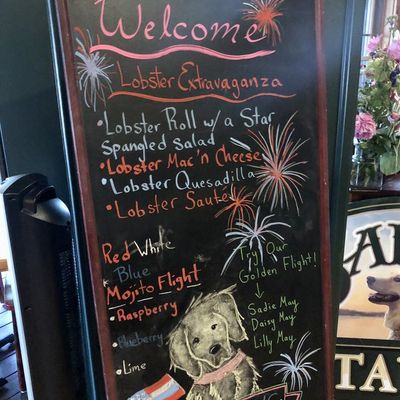 Welcome
Lobster Extravaganza
• Lobster Roll w/ a Star
Spangled Salad
• Lobster Mac 'n Cheese
• Lobster Quesadilla
• Lobster Sauté
Red White
Blue
Mojito Flight
• Raspberry
• Blueberry
• Lime
Try Our
Golden Flight!
Sadie May
Daisy May
Lilly May
TA